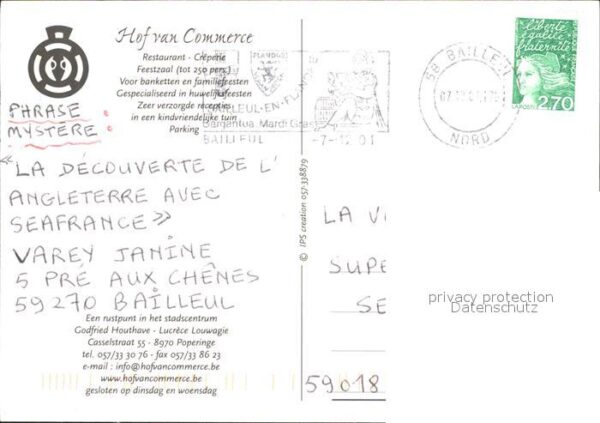 Hof van Commerce
Restaurant - Crêperie
Feestzaal (tot 250 pers.)
Voor banketten en familiefeesten
Gespecialiseerd in huwelijksfeesten
Zeer verzorgde recepties
in een kindvriendelijke tuin
Parking
PHRASE
MYSTÈRE :
« LA DÉCOUVERTE DE L'
ANGLETERRE AVEC
SEAFRANCE »
VAREY JANINE
5 PRÉ AUX CHÊNES
59270 BAILLEUL
Een rustpunt in het stadscentrum
Godfried Houthave - Lucrèce Louwagie
Casselstraat 55 - 8970 Poperinge
tel. 057/33 30 76 - fax 057/33 86 23
e-mail : info@hofvancommerce.be
www.hofvancommerce.be
gesloten op dinsdag en woensdag
© IPS creation 057-338879
FLANDRE
BAILLEUL-EN-FLANDRE
Gargantua Mardi Gras
BAILLEUL
-7-12 01
58 BAILLEUL
NORD
liberté
égalité
fraternité
LA POSTE
2,70
LA
SUPE
SE
59018
privacy protection
Datenschutz